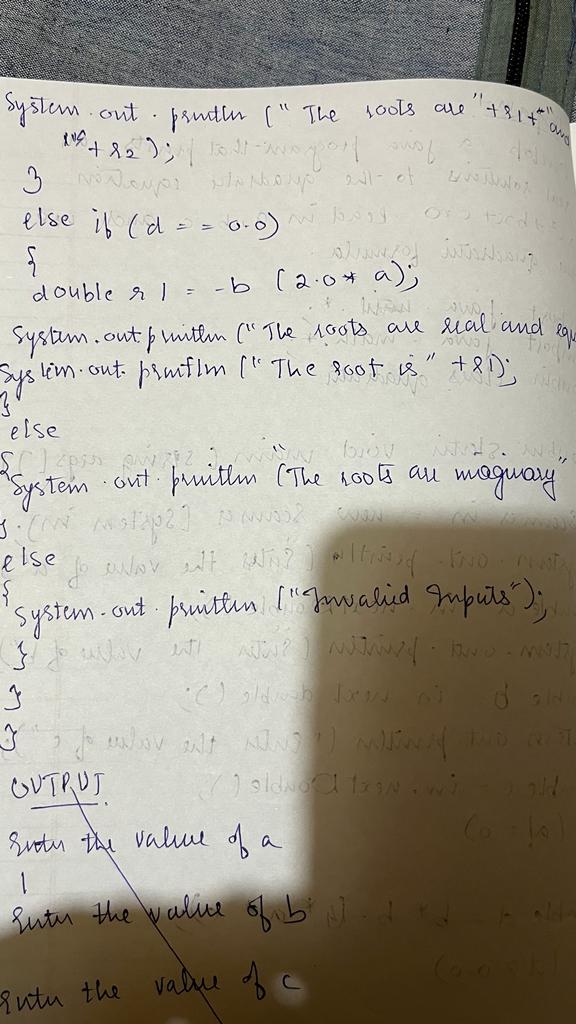 System.out.println (" The roots are "+r1+" "and
"+r2);
}
else if (d == 0.0)
{
double r1 = -b (2.0* a);
System.out println (" The roots are real and equ
System.out.println (" The root is" +r1);
}
else
{
System.out.println (The roots are imaginary"
}
else
{
System.out.println ("Invalid Inputs");
}
}
}
OUTPUT
Enter the value of a
1
Enter the value of b
Enter the value of c